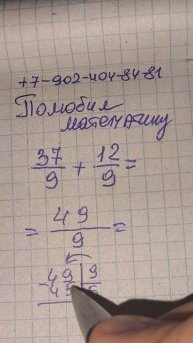 +7-902-404-84-81
Полюбил
математику
37/9 + 12/9 =
= 49/9 =
-49|9